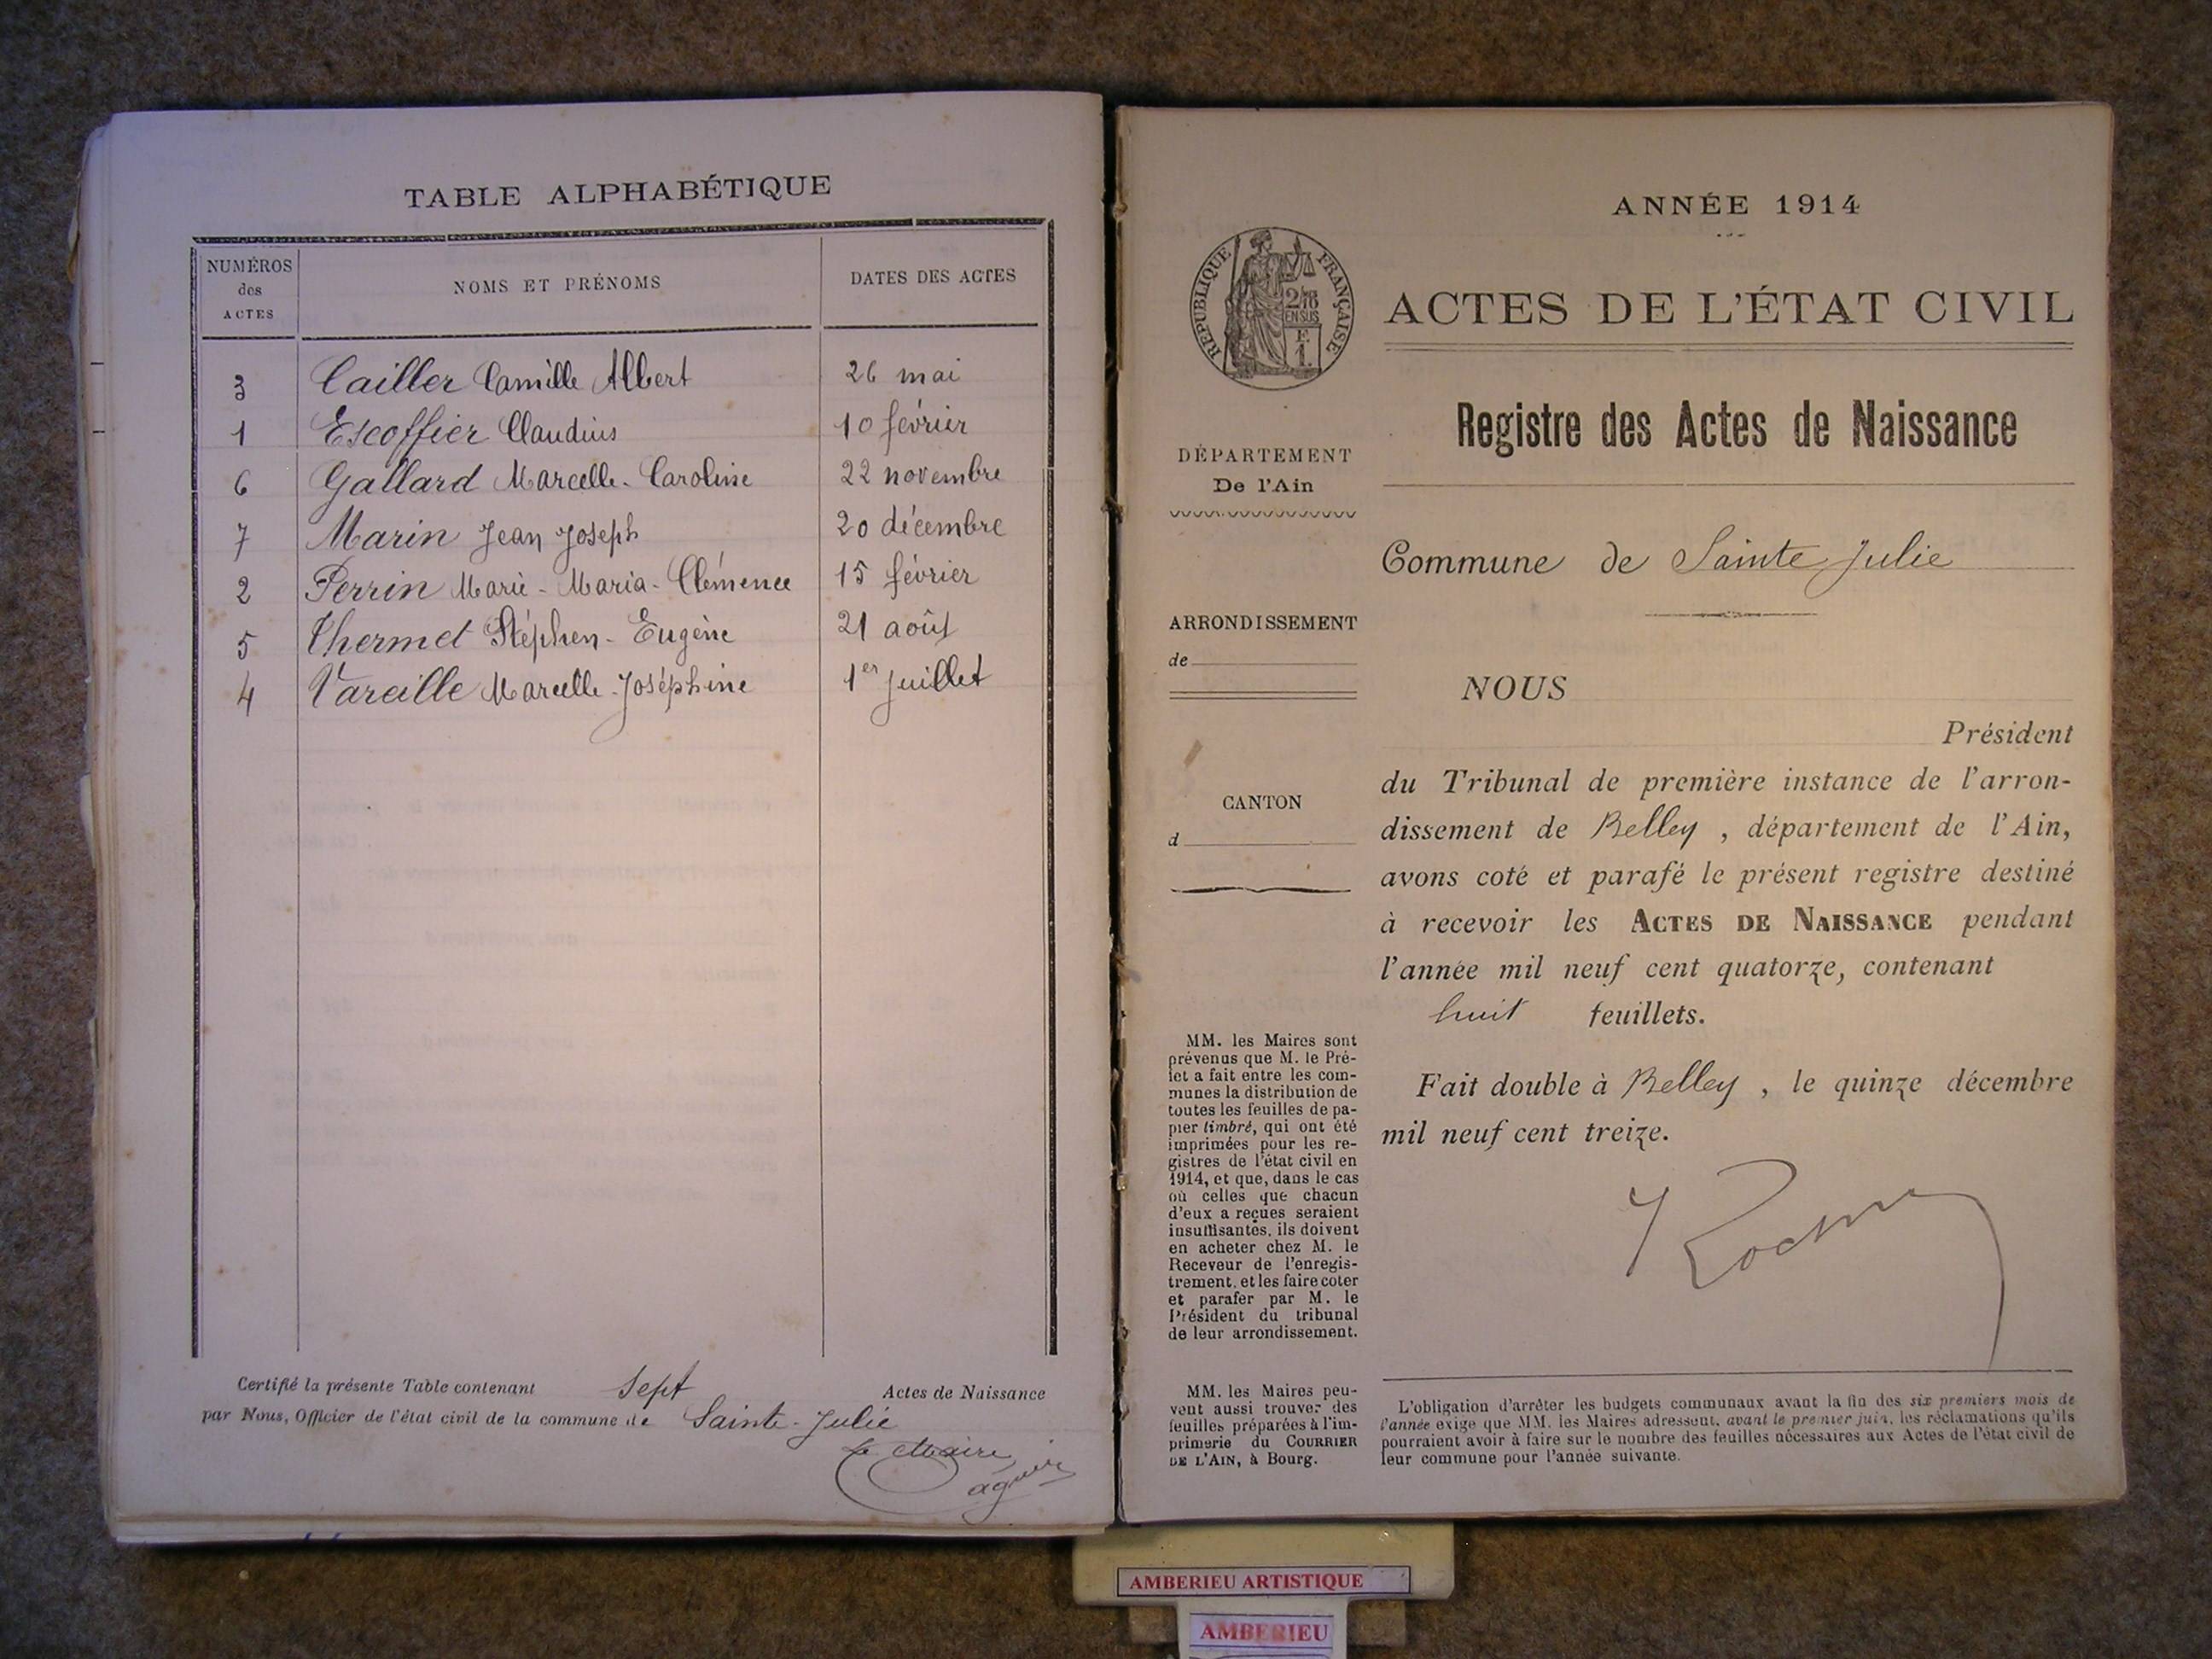 TABLE ALPHABÉTIQUE
NUMÉROS des ACTES
NOMS ET PRÉNOMS
DATES DES ACTES
3 Cailler Camille Albert 26 mai
1 Escoffier Claudius 10 février
6 Gallard Marcelle-Caroline 22 novembre
7 Marin Jean Joseph 20 décembre
2 Perrin Marie-Maria-Clémence 15 février
5 Thermet Stéphen-Eugène 21 août
4 Vareille Marcelle-Joséphine 1er juillet
Certifié la présente Table contenant Sept Actes de Naissance
par Nous, Officier de l'état civil de la commune de Sainte-Julie
Le Maire
ANNÉE 1914
RÉPUBLIQUE FRANÇAISE
2/10
EN SUS
F.
1.
ACTES DE L'ÉTAT CIVIL
Registre des Actes de Naissance
DÉPARTEMENT
De l'Ain
Commune de Sainte Julie
ARRONDISSEMENT
de
NOUS
Président
CANTON
d
du Tribunal de première instance de l'arron-
dissement de Belley, département de l'Ain,
avons coté et parafé le présent registre destiné
à recevoir les ACTES DE NAISSANCE pendant
l'année mil neuf cent quatorze, contenant
huit feuillets.
Fait double à Belley, le quinze décembre
mil neuf cent treize.
MM. les Maires sont
prévenus que M. le Pré-
fet a fait entre les com-
munes la distribution de
toutes les feuilles de pa-
pier timbré, qui ont été
imprimées pour les re-
gistres de l'état civil en
1914, et que, dans le cas
où celles que chacun
d'eux a reçues seraient
insuffisantes, ils doivent
en acheter chez M. le
Receveur de l'enregis-
trement, et les faire coter
et parafer par M. le
Président du tribunal
de leur arrondissement.
MM. les Maires peu-
vent aussi trouver des
feuilles préparées à l'im-
primerie du COURRIER
DE L'AIN, à Bourg.
L'obligation d'arrêter les budgets communaux avant la fin des six premiers mois de
l'année exige que MM. les Maires adressent, avant le premier juin, les réclamations qu'ils
pourraient avoir à faire sur le nombre des feuilles nécessaires aux Actes de l'état civil de
leur commune pour l'année suivante.
AMBERIEU ARTISTIQUE
AMBERIEU